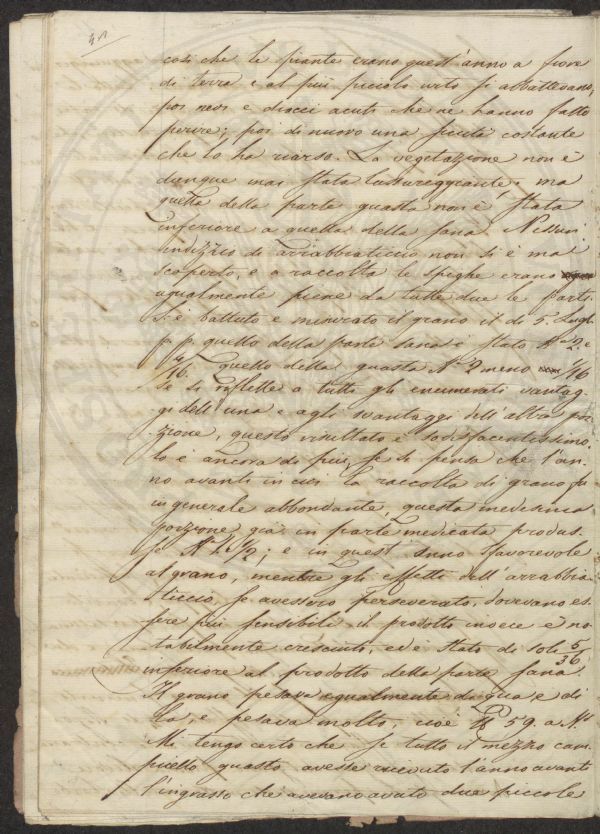 così che le piante erano quest'anno a fiore
di terra e al più piccolo urto si abbattevano,
poi nevi e diacci acuti che ne hanno fatto
perire; poi di nuovo una siccità costante
che lo ha riarso. La vegetazione non è
dunque mai stata lussureggiante; ma
quella della parte guasta non è stata
inferiore a quella della sana. Nessun
indizzio di arrabbiaticcio non si è mai
scoperto, e a raccolta le spighe erano
ugualmente piene da tutte due le parti.
Si è battuto e misurato il grano il dì 5. Lugl.
p. p. quello della parte sana è stato 2 e
/16. quello della guasta 2 meno 1/16
Se si riflette a tutti gli enumerati vantag-
gi dell'una e agli svantaggi dell'altra por-
zione, questo risultato è sodisfacentissimo.
lo è ancora di più, se si pensa che l'an-
no avanti in cui la raccolta di grano fu
in generale abbondante, questa medesima
porzione già in parte medicata produs-
se 1/2; e in quest'anno sfavorevole
al grano, mentre gli effetti dell'arrabbia-
ticcio, se avessero perseverato, dovevano es-
sere più sensibili il prodotto invece è no-
tabilmente cresciuto, ed è stato di soli 5/36
inferiore al prodotto della parte sana.
Il grano pesava egualmente di qua e di
là, e pesava molto, cioè 59. a
Mi tengo certo che se tutto il mezzo cam-
picello guasto avesse ricevuto l'anno avanti
l'ingrasso che avevano avuto due piccole